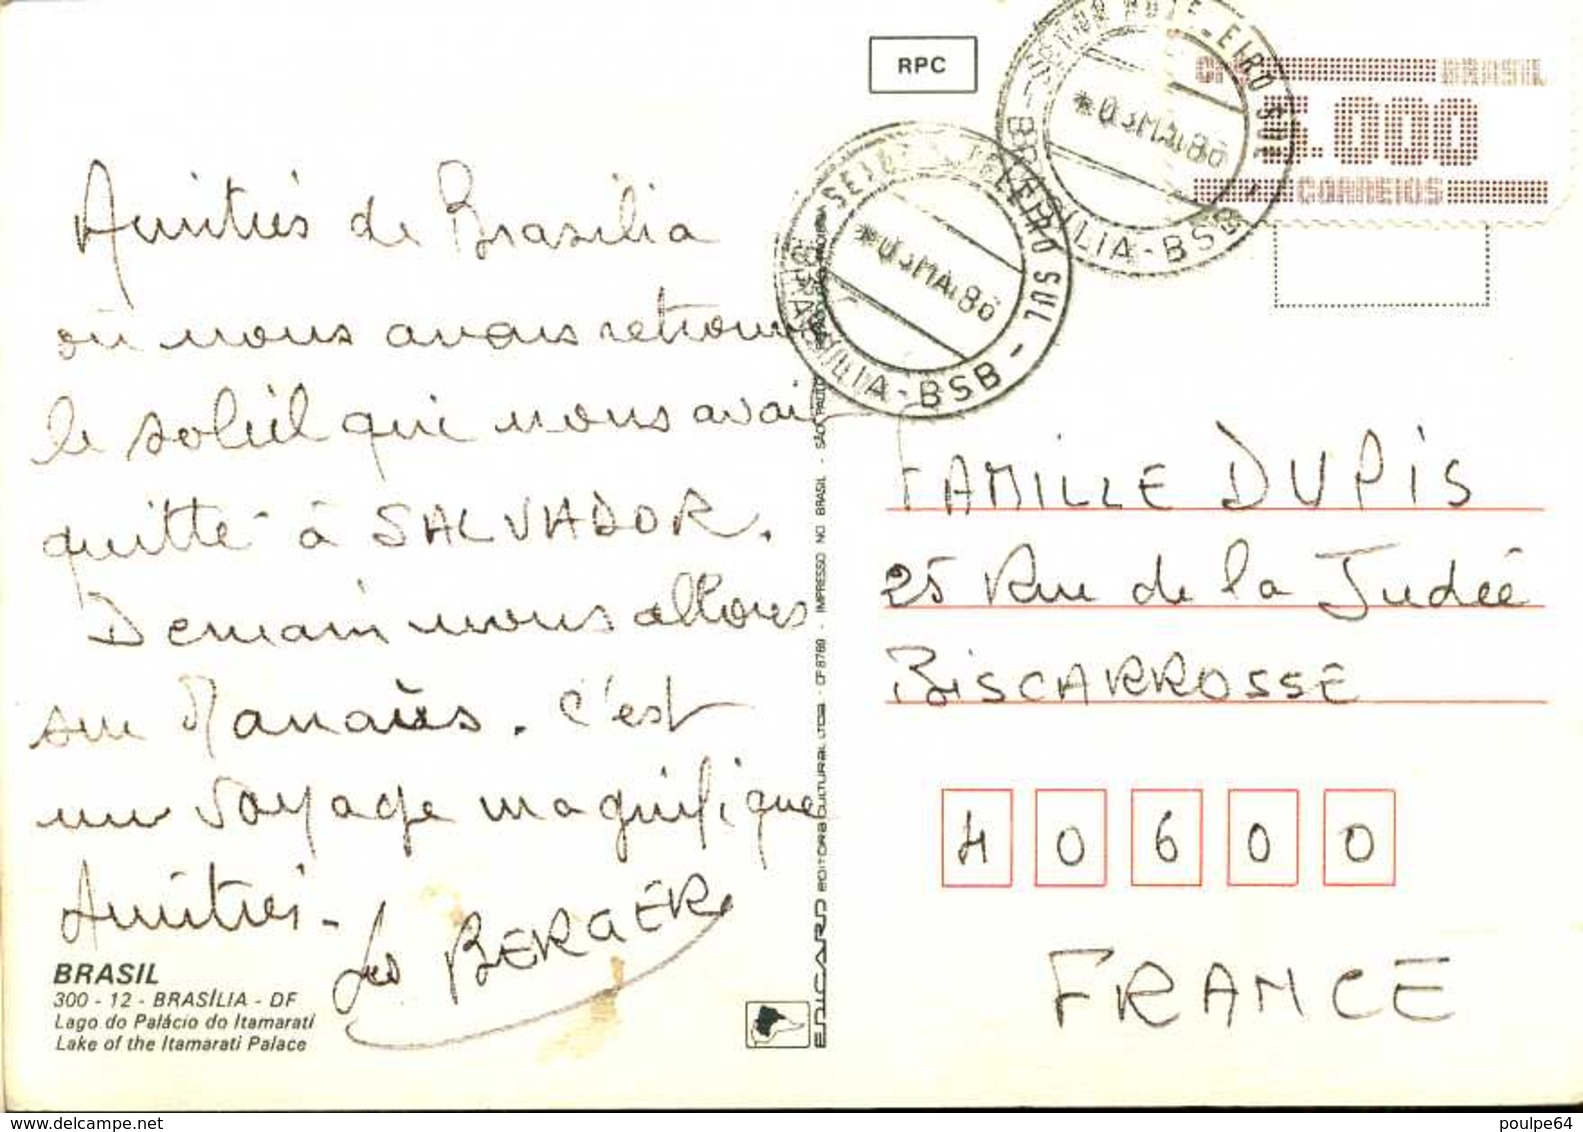 RPC
BRASIL
CORREIOS
SETOR HOTELEIRO SUL
*03 MAI 86
BRASÍLIA - BSB -
SETOR HOTELEIRO SUL
*03 MAI 86
BRASÍLIA - BSB -
Amitiés de Brasilia
où nous avons retrouvé
le soleil qui nous avait
quitté à SALVADOR.
Demain nous allons
sur Manaüs. C'est
un voyage magnifique
Amitiés -
Les BERGER
FAMILLE DUPIS
25 Rue de la Judée
BISCARROSSE
40600
FRANCE
BRASIL
300 - 12 - BRASÍLIA - DF
Lago do Palácio do Itamarati
Lake of the Itamarati Palace
EDICARD EDITORA CULTURAL LTDA - CF8769 - IMPRESSO NO BRASIL - SÃO PAULO
delcampe.net
poulpe64